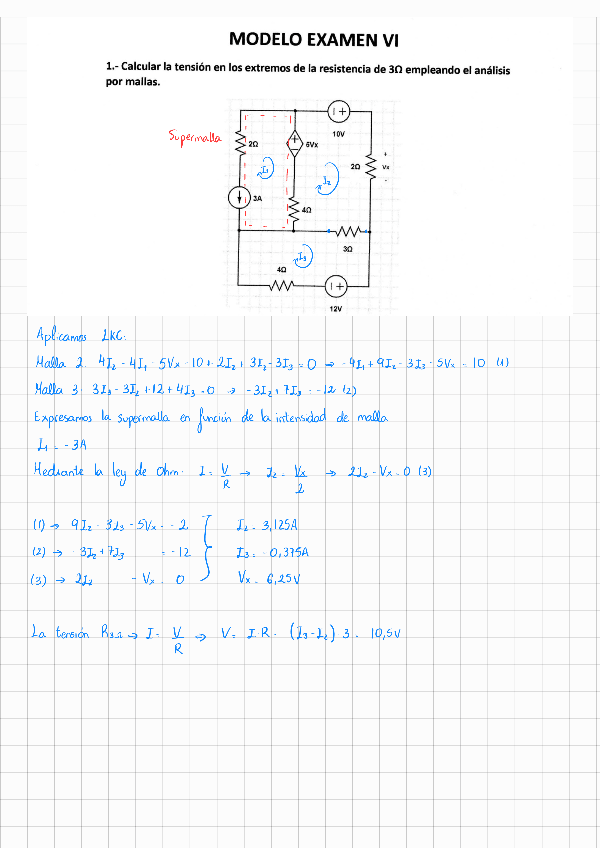 MODELO EXAMEN VI
1.- Calcular la tensión en los extremos de la resistencia de 3Ω empleando el análisis
por mallas.
10V
Supermalla
2Ω
6Vx
2Ω
+
Vx
-
I₁
I₂
3A
4Ω
3Ω
I₃
4Ω
12V
Aplicamos LKC:
Malla 2: 4I₂ - 4I₁ - 5Vx - 10 + 2I₂ + 3I₂ - 3I₃ = 0 → -4I₁ + 9I₂ - 3I₃ - 5Vx = 10 (1)
Malla 3: 3I₃ - 3I₂ + 12 + 4I₃ = 0 → -3I₂ + 7I₃ = -12 (2)
Expresamos la supermalla en función de la intensidad de malla
I₁ = -3A
Mediante la ley de Ohm: I = V/R → I₂ = Vx/2 → 2I₂ - Vx = 0 (3)
(1) → 9I₂ - 3I₃ - 5Vx = -2 I₂ = 3,125A
(2) → -3I₂ + 7I₃ = -12 I₃ = -0,375A
(3) → 2I₂ - Vx = 0 Vx = 6,25V
La tensión R₃Ω → I = V/R → V = I·R = (I₃ - I₂) 3 = 10,5V